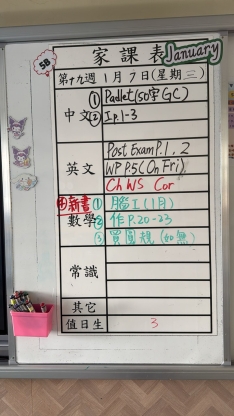 5B
家課表
January
第十九週 1月7日(星期三)
中文
① Padlet(50字GC)
② I p.1-3
英文
Post Exam P.1, 2
WP P.5 (On Fri)
Ch WS Cor
數學
新書 ① 腦I(1月)
② 作P.20-23
③ 買圓規(如無)
常識
其它
值日生 3